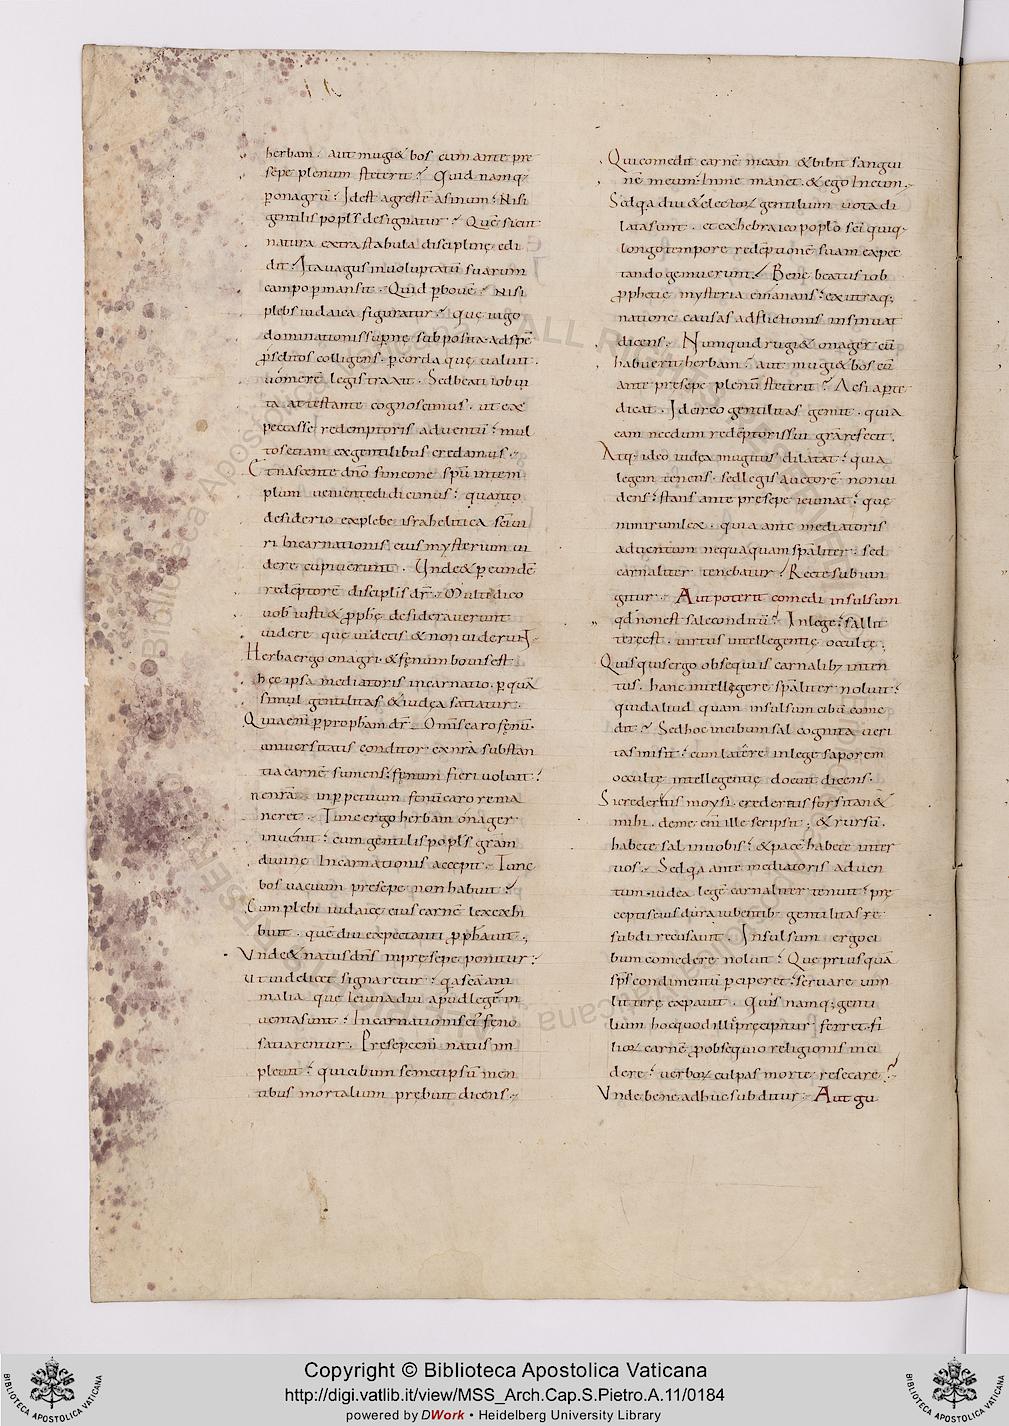 herbam. aut mugi& bos cum ante pre
sepe plenum steterit? Quid namq;
p onagrũ? Idest agrestẽ asinum? Nisi
gentilis popls designatur? Quẽ sicut
natura extra stabula disciplinę edi
dit? Ita vagus in voluptatũ suarum
campo pmansit. Quid p bovẽ? Nisi
plebs iudaica figuratur? que iugo
dominationis supnę subposita. ad spẽ
pselitos colligens. p corda quę valuit.
vomerẽ legis traxit. Sed beati iob vi
ta attestante cognoscimus. ut ex
pectasse redemptoris adventũ? mul
tos etiam ex gentilibus credamus.
Et nascente dño simeone spũ in tem
plum veniente didicimus? quanto
desiderio ex plebe israhelitica sci vi
ri Incarnationis eius mysterium vi
dere cupiverunt. Unde & p eundẽ
redẽptorẽ discipulis dr. Multi dico
vob iusti & pphę desideraverunt
videre que videtis & non viderunt.
Herba ergo onagri. & fenum bovis est
hęc ipsa mediatoris incarnatio. p quã
simul gentilitas & iudęa satiatur.
Quia eni p propham dr. Omnis caro fenũ.
universitatis conditor ex nrã substan
tia carnẽ sumens. fenum fieri voluit?
ne nrã in ppetuum fenũ caro rema
neret. Tunc ergo herbam onager
invenit? cum gentilis popls grãm
divinę Incarnationis accepit. Tunc
bos vacuum presepe non habuit?
Cum plebi iudaicę eius carnẽ lex exhi
buit. quẽ diu expectanti pphavit.
Unde & natus dñs in presepe ponitur?
Ut videlicet signaretur? qa scã ani
malia que ieiuna diu apud legẽ in
venta sunt? Incarnationis ei feno
satiarentur. Presepe eni natus im
plevit? qui cibum semetipsũ men
tibus mortalium prebuit dicens.
Qui comedit carnẽ meam & bibit sangui
nẽ meum? In me manet. & ego In eum.
Sed qa diu & electoꝝ gentilium vota di
lata sunt. et ex hebraico poplo sci quiq;
longo tempore redẽptionẽ suam expec
tando gemuerunt? Bene beatus iob
pphetię mysteria emanans? ex utraq;
natione causas adflictionis insinuat
dicens. Numquid rugi& onager cũ
habuerit herbam? aut mugi& bos cũ
ante presepe plenũ steterit? Ac si apte
dicat. Idcirco gentilitas gemit. quia
eam necdum redẽptoris sui gra reficit.
Atq; ideo iudea mugitus dilatat? quia
legem tenens. sed legis auctorẽ non vi
dens? stans ante presepe ieiunat? quę
nimirum lex. quia ante mediatoris
adventum nequaquam spaliter. sed
carnaliter tenebatur? Recte subiun
gitur. Aut poterit comedi insulsum
qd non est sale conditũ? In lege? sal lit
terę est. virtus intellegentię occultę.
Quisquis ergo obsequiis carnalib; inten
tus. hanc intellegere spaliter noluit?
quid aliud quam insulsum cibũ come
dit? Sed hoc in cibum sal cognita veri
tas misit? cum latere in lege saporem
occultę intellegentię docuit dicens.
Si crederetis moysi. crederetis forsitan &
mihi. de me eni ille scripsit. & rursũ.
habete sal in vobis? & pacẽ habete inter
vos. Sed qa ante mediatoris adven
tum. iudea legẽ carnaliter tenuit? prę
ceptis eius dura iubentib. gentilitas se
subdi recusavit. Insulsum ergo ci
bum comedere noluit? Que prius quã
sps condimentũ pciperet? servare vim
litterę expavit. Quis namq; genti
lium hoc quod illi precipitur ferret. fi
lioꝝ carnẽ p obsequio religionis inci
dere? verboꝝ culpas morte resecare?
Unde bene adhuc subditur. Aut gu
Copyright © Biblioteca Apostolica Vaticana
http://digi.vatlib.it/view/MSS_Arch.Cap.S.Pietro.A.11/0184
powered by DWork • Heidelberg University Library
BIBLIOTECA APOSTOLICA VATICANA
BIBLIOTECA APOSTOLICA VATICANA